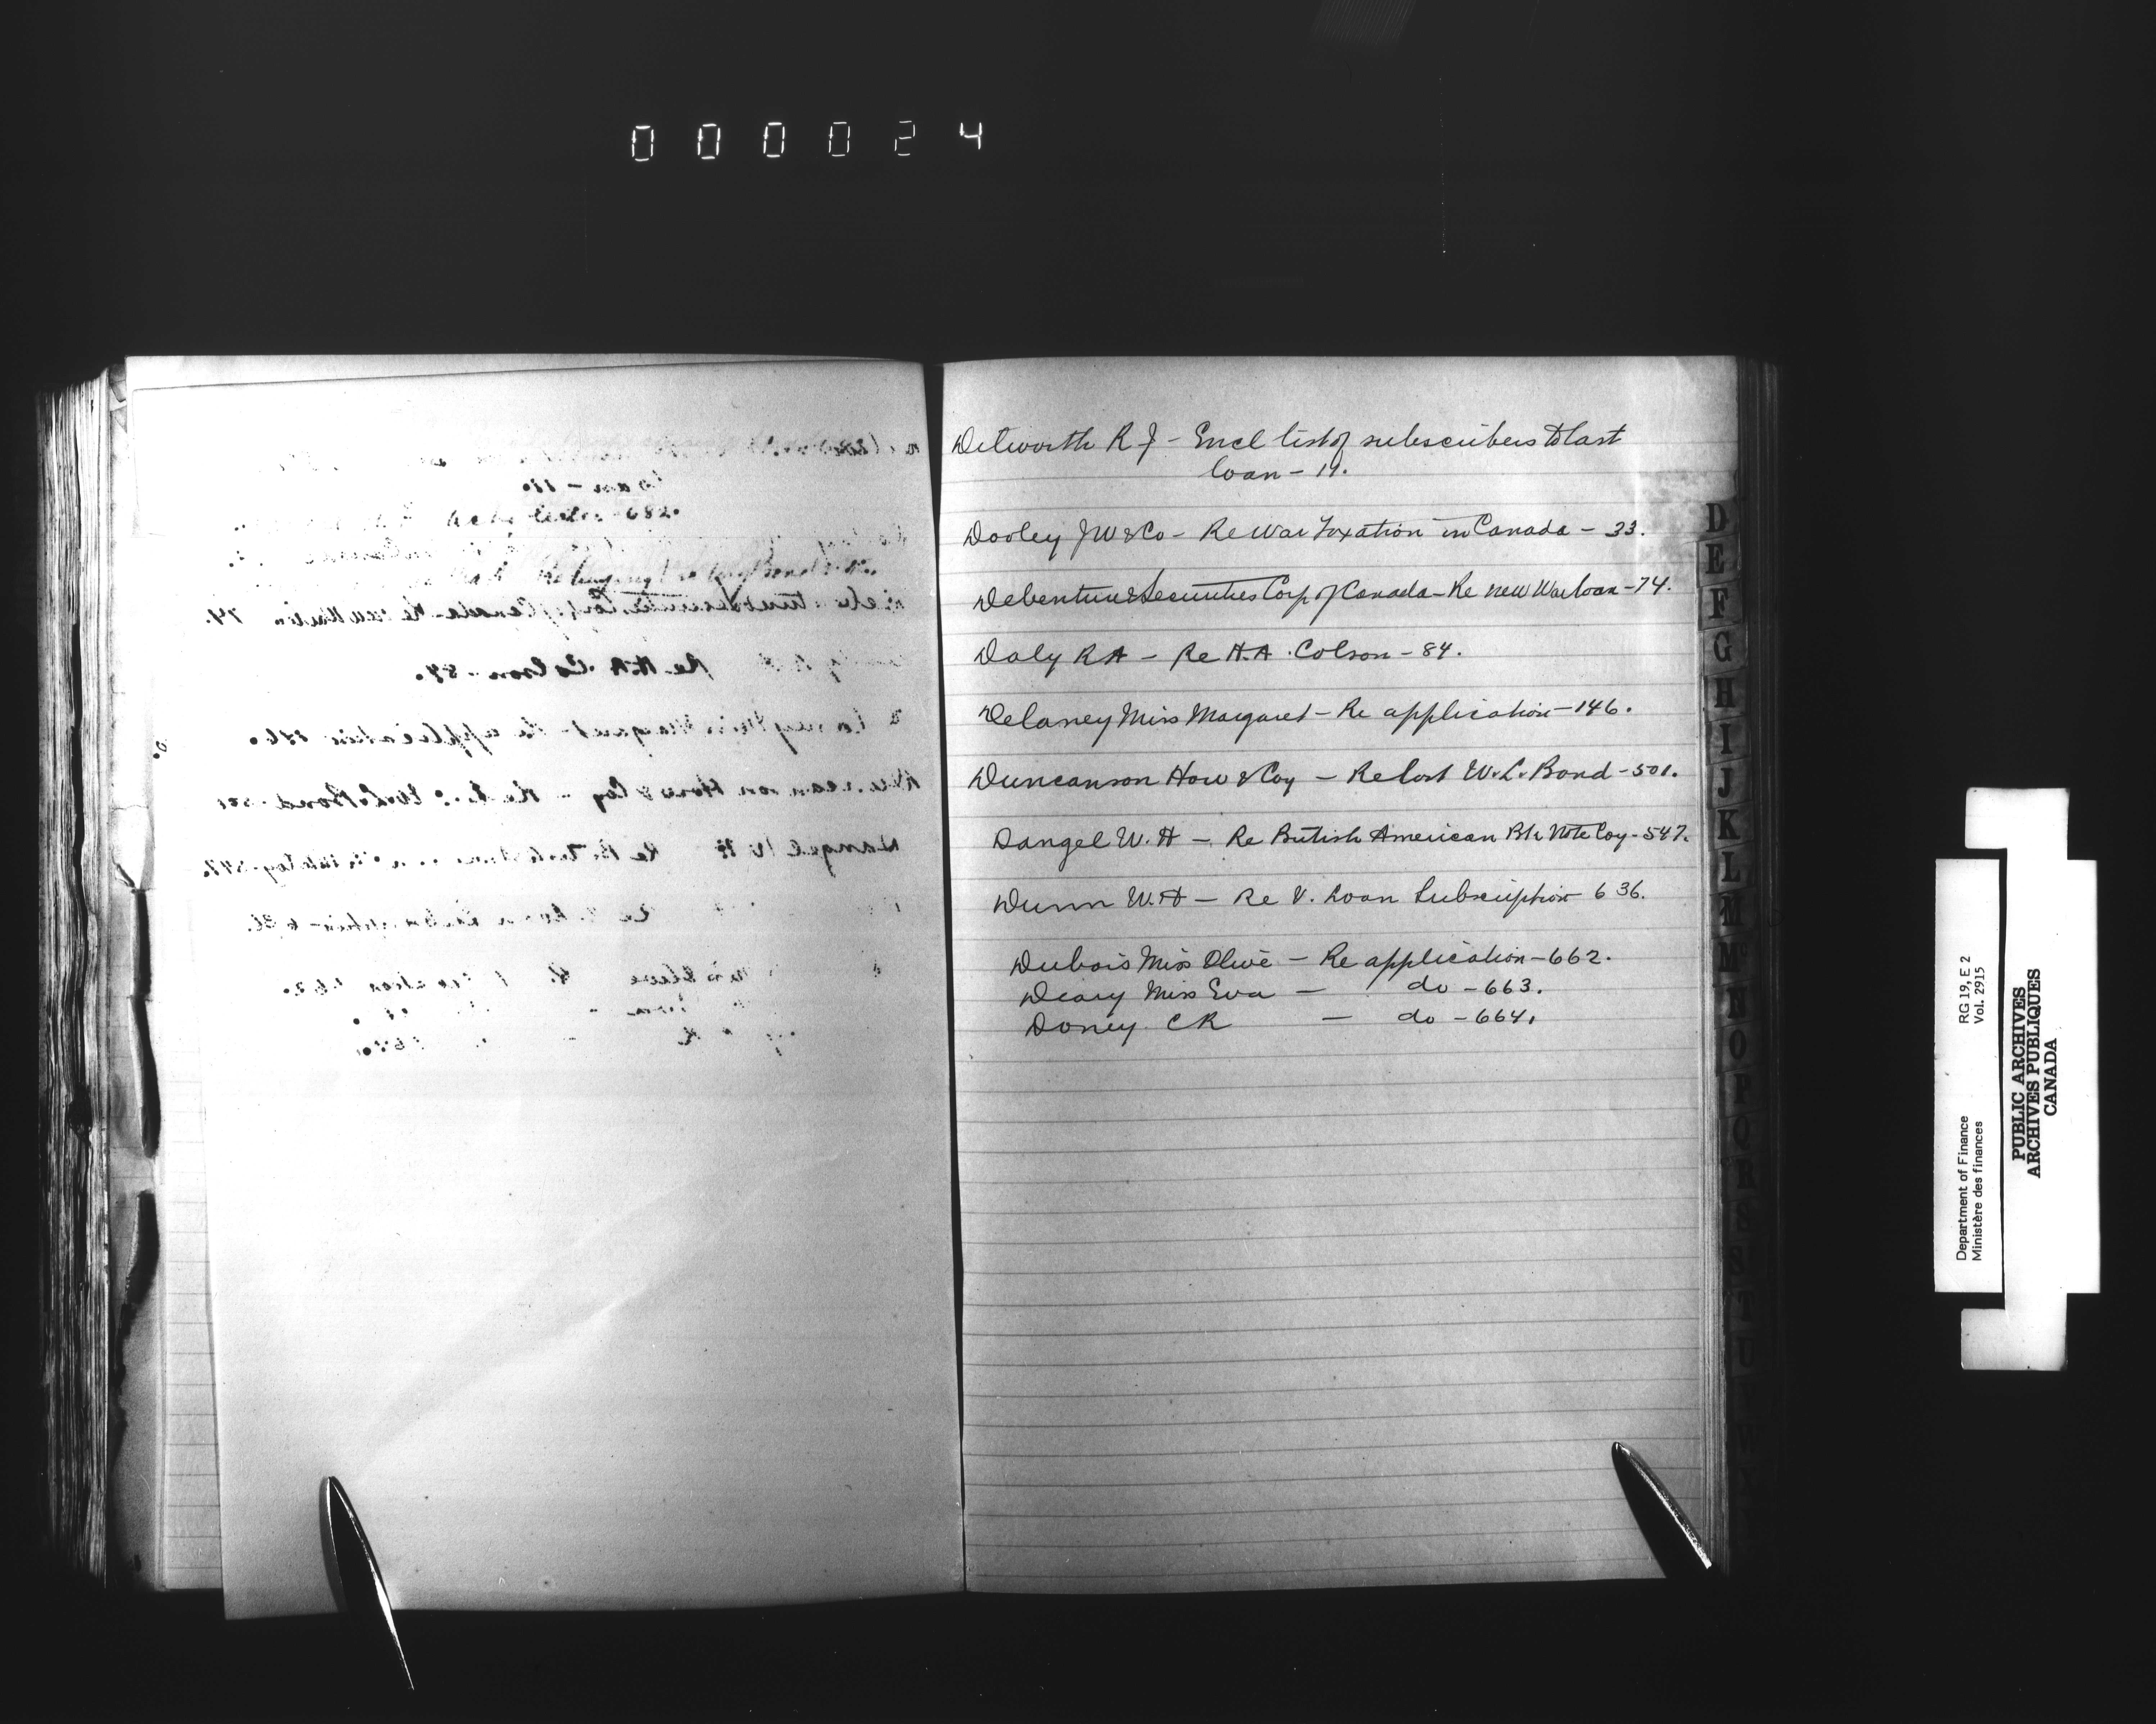 000024
Dilworth R J - Encl list of subscribers to last
loan - 11.
Dooley J W & Co - Re War Taxation in Canada - 33.
Debenture & Securities Corp of Canada - Re new War loan - 74.
Daly R A - Re H.A. Colson - 84.
Delaney Miss Margaret - Re application - 146.
Duncanson How & Coy - Re lost W. L. Bond - 501.
Dangel W. H - Re British American Bk Note Coy - 547.
Dunn W. H - Re V. Loan Subscription 636.
Dubois Miss Olive - Re application - 662.
Deary Miss Eva - do - 663.
Doney C R - do - 664.
D
E
F
G
H
I
J
K
L
M
Mc
N
O
P
Q
R
S
T
U
W
Department of Finance
Ministère des finances
RG 19, E 2
Vol. 2915
PUBLIC ARCHIVES
ARCHIVES PUBLIQUES
CANADA